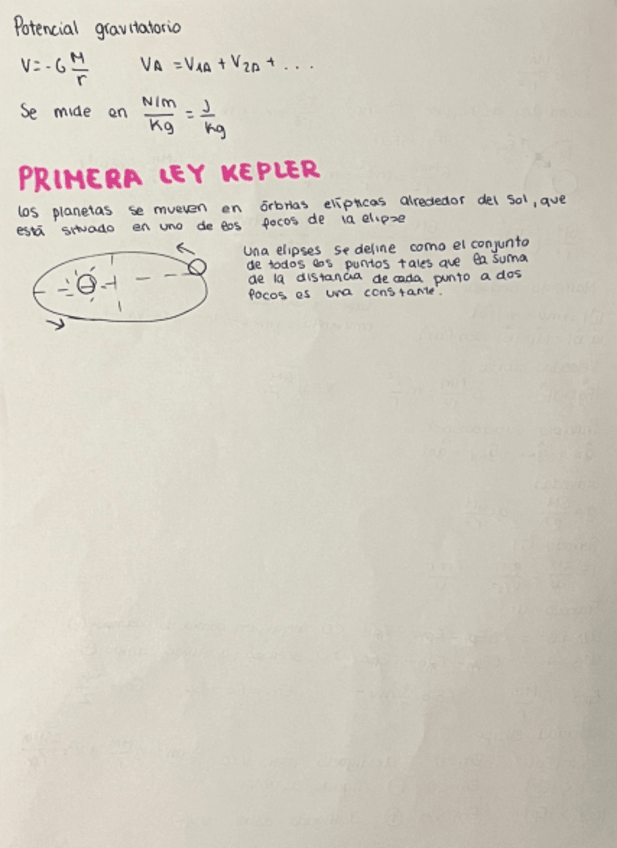 Potencial gravitatorio
V = - G M/r    VA = V1A + V2A + ...
Se mide en N/m/Kg = J/Kg
PRIMERA LEY KEPLER
Los planetas se mueven en órbitas elípticas alrededor del Sol, que
está situado en uno de los focos de la elipse
Una elipses se define como el conjunto
de todos los puntos tales que la suma
de la distancia de cada punto a dos
focos es una constante.